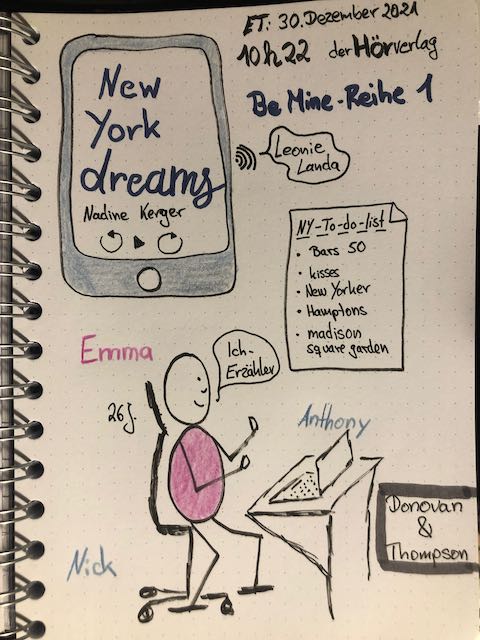 ET: 30. Dezember 2021
10h22 der Hörverlag
Be Mine-Reihe 1
New
York
dreams
Nadine Kerger
Leonie
Landa
NY-To-do-list
• Bars 50
• kisses
• New Yorker
• Hamptons
• madison
square garden
Emma
Ich-
Erzähler
26J.
Anthony
Donovan
&
Thompson
Nick